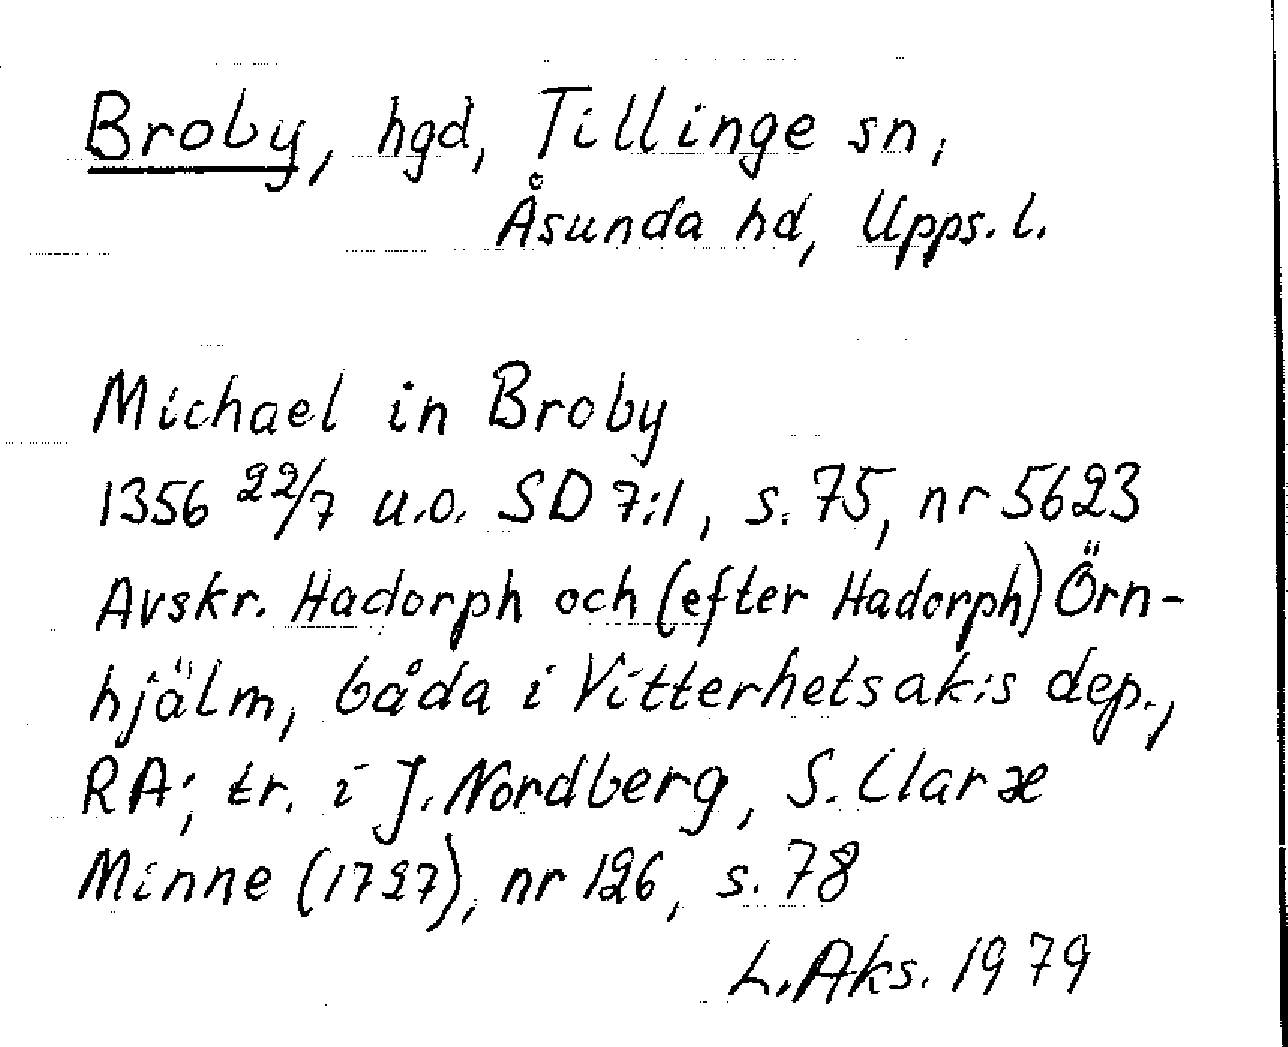 Broby, hgd, Tillinge sn,
Åsunda hd, Upps. l.
Michael in Broby
1356 22/7 u.o. SD 7:1, s. 75, nr 5623
Avskr. Hadorph och (efter Hadorph) Örn-
hjälm, båda i Vitterhetsak:s dep.,
RA; tr. i J. Nordberg, S. Claræ
Minne (1727), nr 126, s. 78
L. Aks. 1979